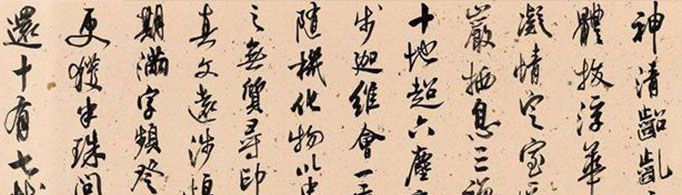 神清齠齔
體拔浮華
凝情定室
巖栖息三禪
十地超六塵
步迦維會一
隨機化物以中
之無質尋印
真文遠涉恆
期滿字頻登
更獲半珠問
還十有七載